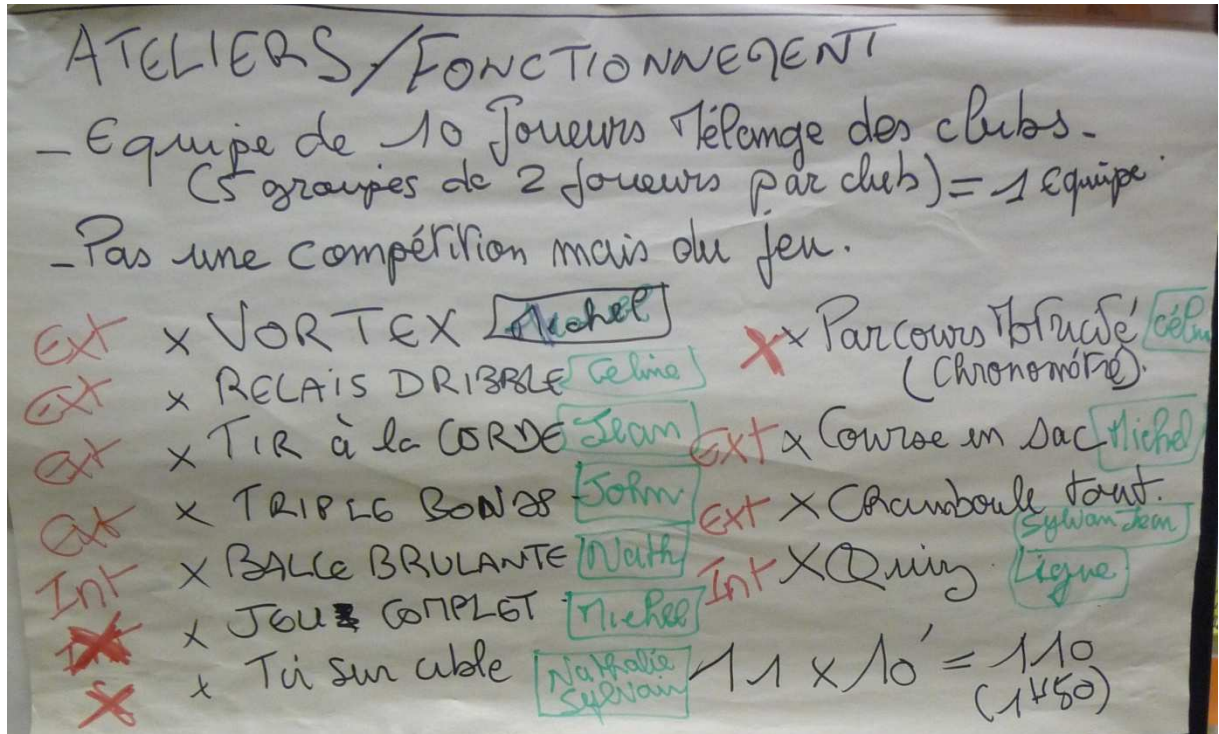 ATELIERS/FONCTIONNEMENT
- Equipe de 10 Joueurs Mélange des clubs -
(5 groupes de 2 Joueurs par club) = 1 Equipe
- Pas une compétition mais du jeu.
Ext x VORTEX Michel
Ext x RELAIS DRIBBLE Celine
Ext x TIR à la CORDE Jean
Ext x TRIPLE BONDS John
Int x BALLE BRULANTE Nath
x JEU COMPLET Michel
x Tir sur cible Nathalie Sylvain
x Parcours Motricité
(Chronométré).
Ext x Course en sac Michel
Ext x Chamboule tout.
Sylvain Jean
Int x Quiz Ligue
11 x 10' = 110
(1H50)